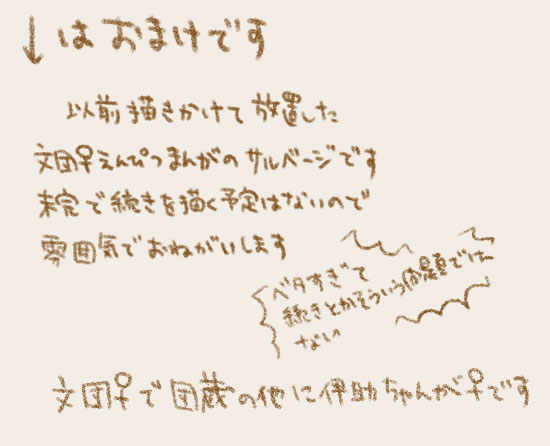 ↓はおまけです
以前描きかけて放置した
文団♀えんぴつまんがのサルベージです
未完で続きを描く予定はないので
雰囲気でおねがいします
ベタすぎて
続きとかそういう問題では
ない
文団♀で団蔵の他に伊助ちゃんが♀です